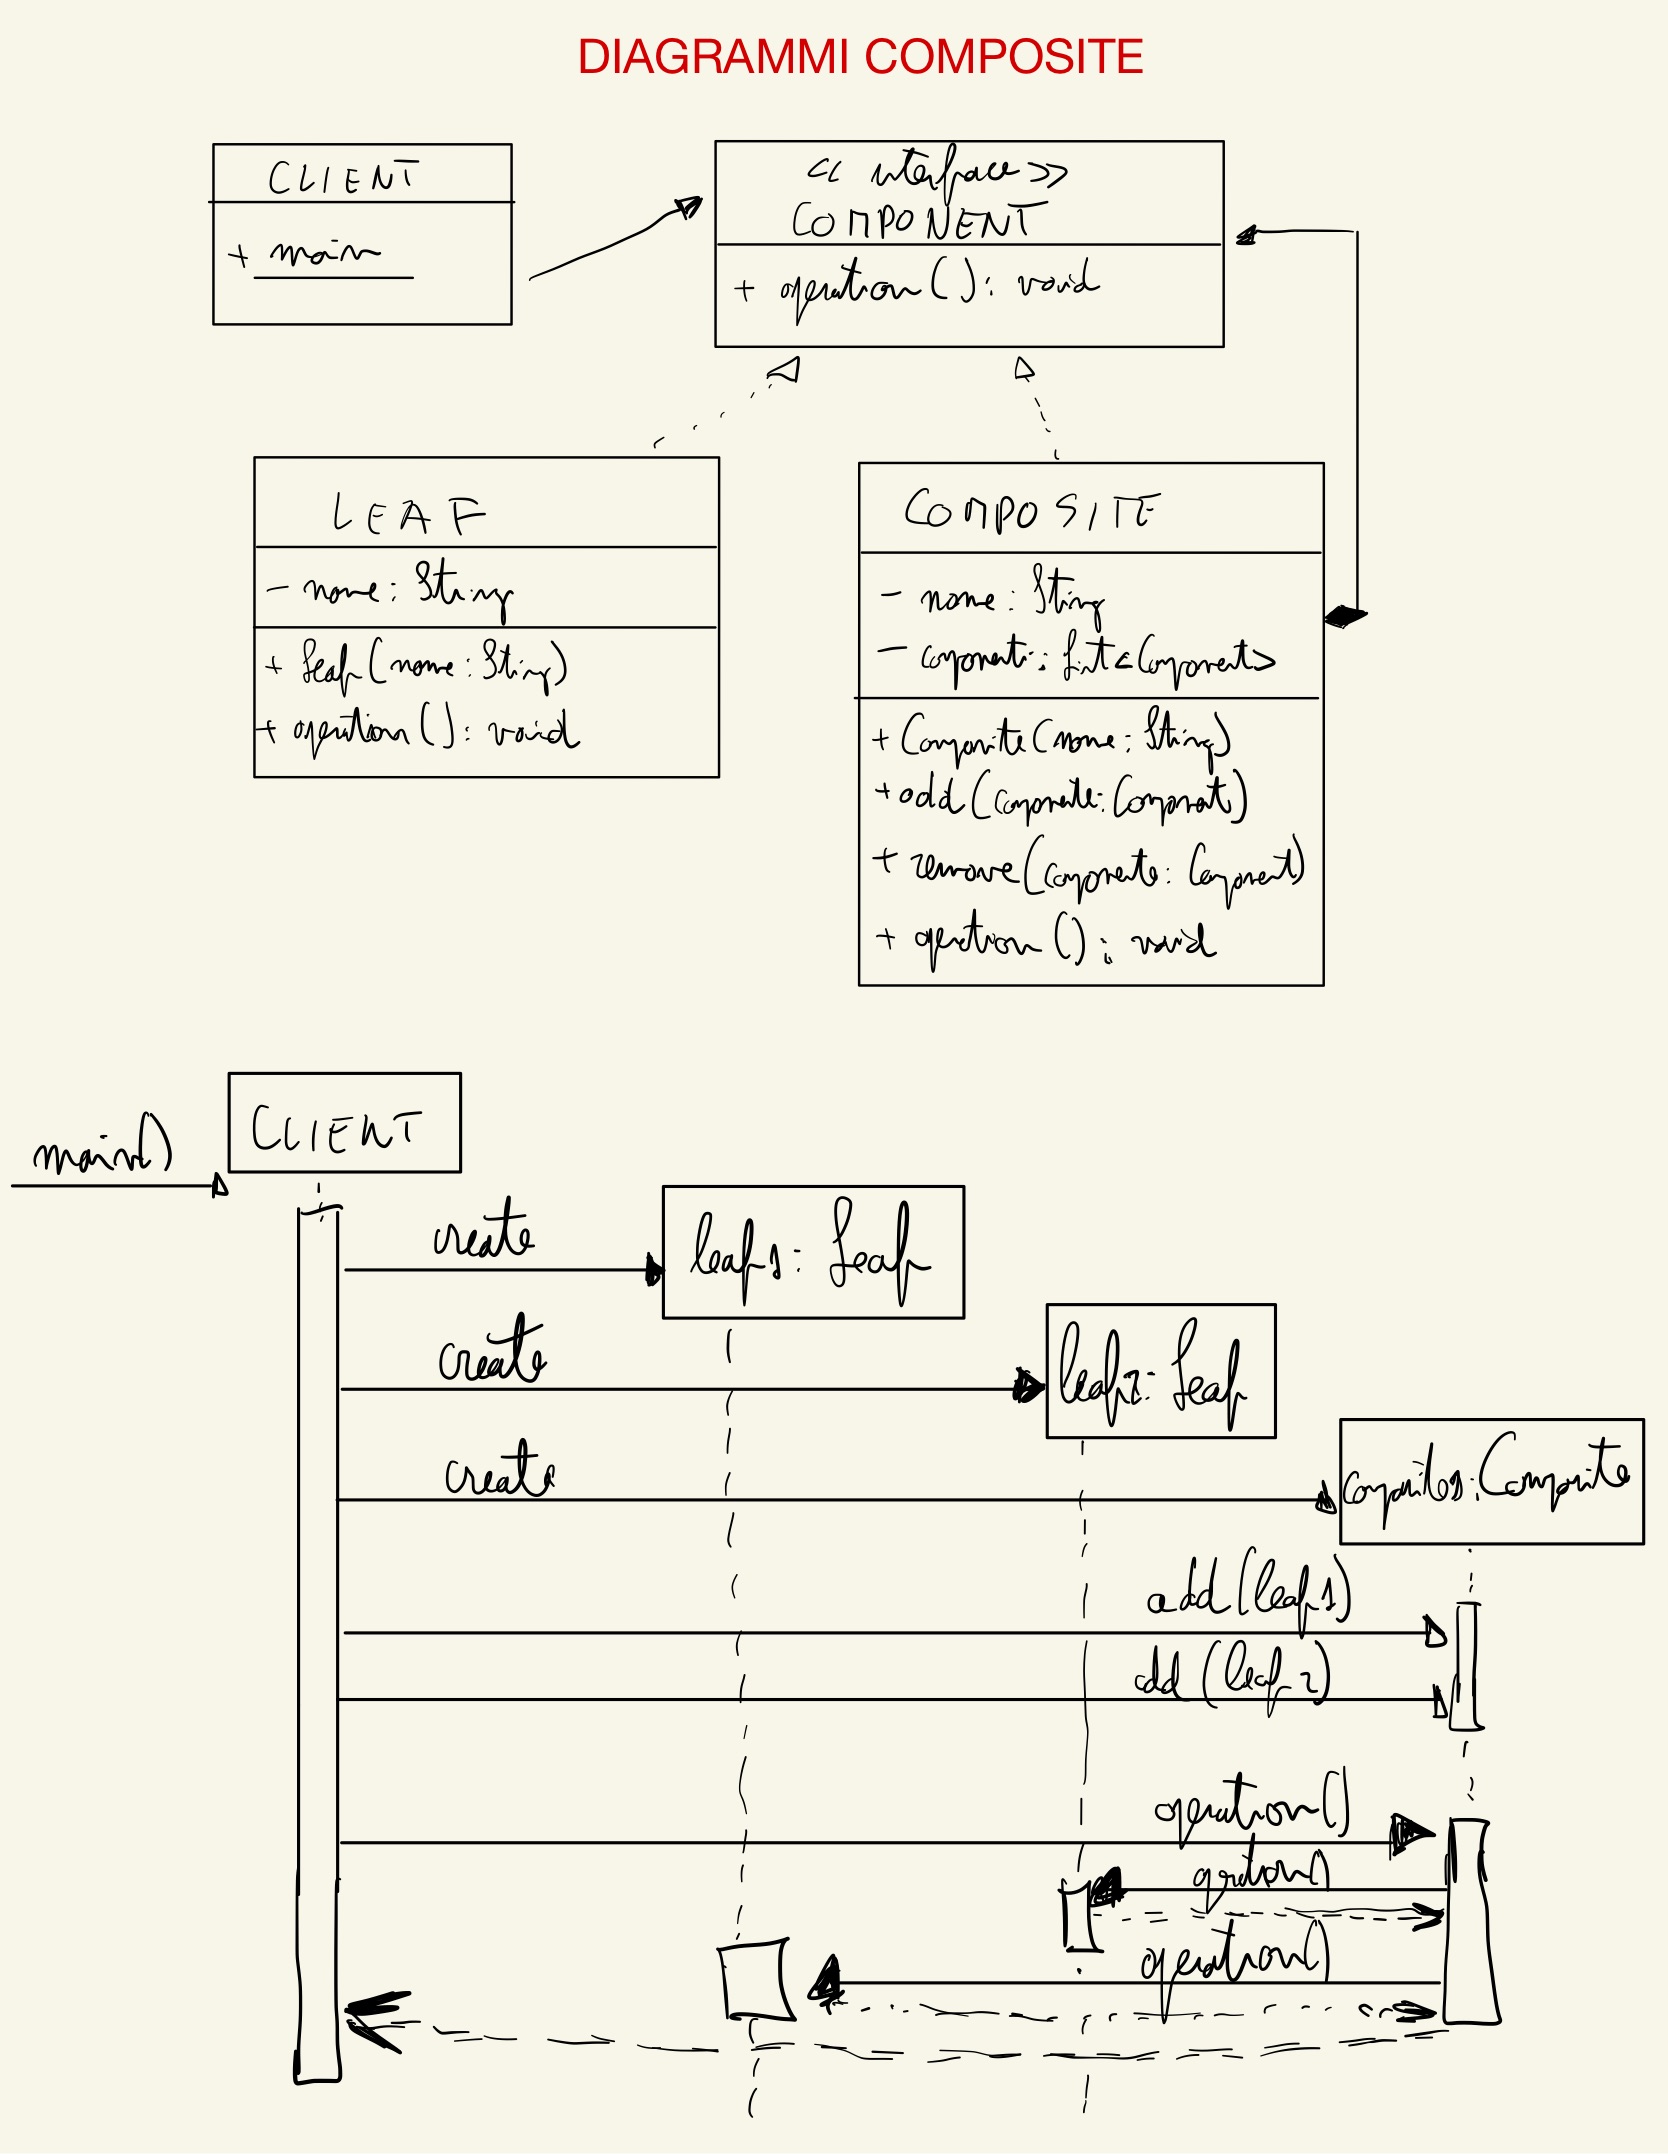 DIAGRAMMI COMPOSITE
CLIENT
+ main
<< interface >>
COMPONENT
+ operation () : void
LEAF
- nome : String
+ Leaf (nome : String)
+ operation () : void
COMPOSITE
- nome : String
- componenti : List<Component>
+ Composite (nome : String)
+ add (componente : Component)
+ remove (componente : Component)
+ operation () : void
main()
CLIENT
create
leaf1 : Leaf
create
leaf2 : Leaf
create
composite1 : Composite
add (leaf1)
add (leaf2)
operation()
operation()
operation()